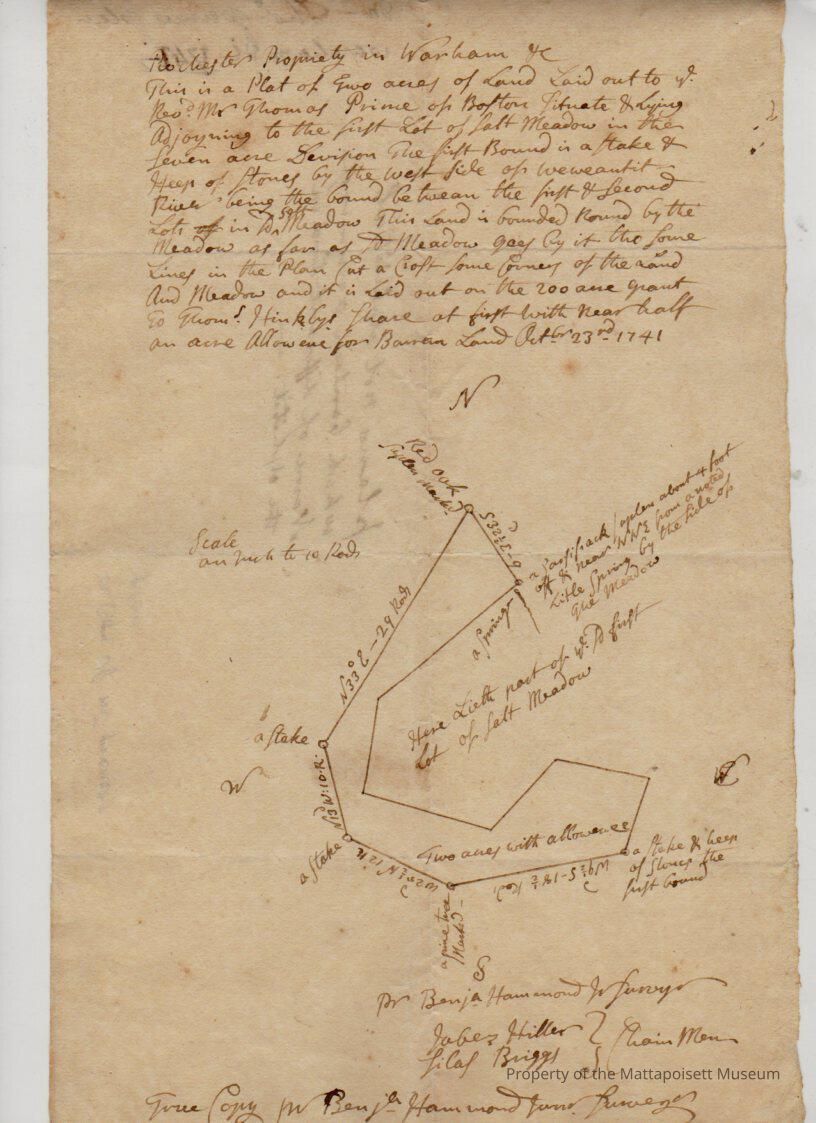 Rochester Propriety in Warham &c
This is a Plat of Two acres of Land Laid out to yᵉ
Revᵈ Mʳ Thomas Prince of Boston Situate & Lying
Adjoyning to the first Lot of Salt Meadow in the
Seven acre Devision The first Bound is a Stake &
Heep of Stones by the west Side of weweantit
River being the bound betwean the first & Second
Lots in Sd Salt Meadow This Land is bounded Round by the
Meadow as far as Sd Meadow goes by it tho Some
Lines in the Plan Cut a Crost Some Corners of the Land
And Meadow and it is Laid out on the 200 acre grant
To Thomˢ Hinklys Share at first with Near half
an acre Allowence for Barran Land Octbr 23rd 1741
N
Red oak
Saplen Markd
S32½ E-9
a Sassifrack saplen about 4 foot
off & near NNE from a noted
Little Spring by the Side of
the Meadow
Scale
an Inch to 10 Rods
N33° E - 29 Rods
a Spring
Here Lieth part of yᵉ Sd first
Lot of Salt Meadow
a Stake
W
E
N13 W:10:R
a Stake
Two acres with allowence
a Stake & heep
of Stones the
first bound
N 12 R
W9½ S-18½ Rd
a pine tree
Markd
S
Pr Benja Hammond Jr Surveyr
Jabez Hiller
Silas Briggs } Chain Men
Property of the Mattapoisett Museum
True Copy pr Benja Hammond Junr Surveyr